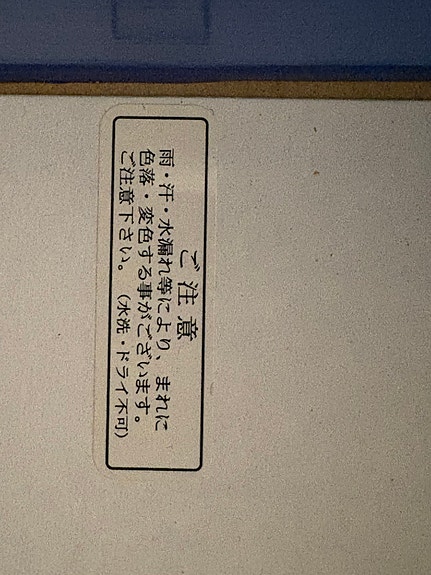 ご注意
雨・汗・水漏れ等により、まれに
色落・変色する事がございます。
ご注意下さい。（水洗・ドライ不可）